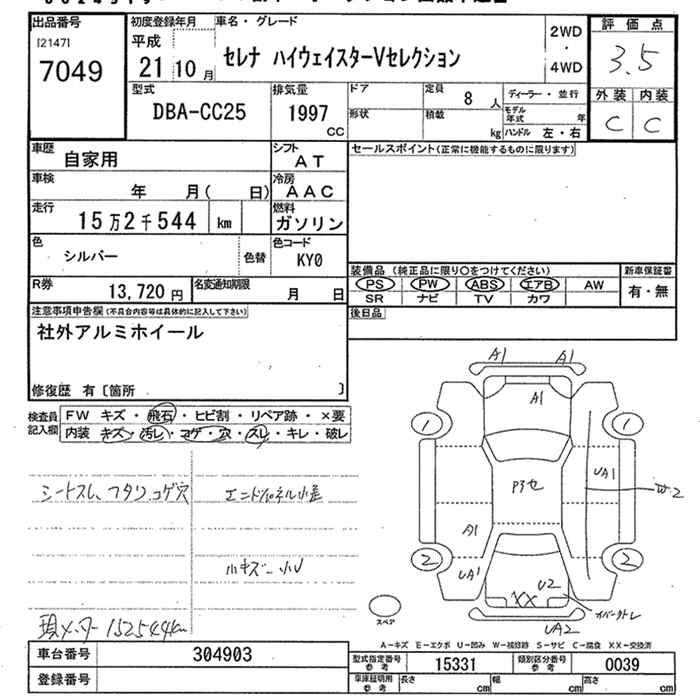 出品番号
[2147]
7049
初度登録年月
平成
21 10 月
車名・グレード
セレナ ハイウェイスターVセレクション
2WD
・
4WD
評価点
3.5
外装 内装
C C
型式
DBA-CC25
排気量
1997
CC
ドア
定員
8 人
形状
積載
kg
ディーラー・並行
モデル年式 年
ハンドル 左・右
車歴
自家用
シフト
AT
車検
年 月( 日)
冷房
AAC
走行
15万2千544 km
燃料
ガソリン
色
シルバー
色替
色コード
KY0
R券
13,720 円
名変通知期限
月 日
セールスポイント(正常に機能するものに限ります)
装備品 (純正品に限り○をつけてください)
PS PW ABS エアB AW
SR ナビ TV カワ
新車保証書
有・無
後日品
注意事項申告欄(不具合内容等は具体的に記入して下さい)
社外アルミホイール
修復歴 有〔箇所 〕
検査員
記入欄
FW キズ・飛石・ヒビ割・リペア跡・×要
内装 キズ・汚レ・コゲ・穴・スレ・キレ・破レ
シートスレ、フタワ、コゲ穴
小キズ 小U
現メーター 152544km
A1 A1
A1
1 1
UA1
W2
P3セ
A1
UA1
2 2
U2
XX
UA2
スペア
A－キズ E－エクボ U－凹み W－補修跡 S－サビ C－腐食 XX－交換済
車台番号
304903
登録番号
型式指定番号
参考
15331
類別区分番号
参考
0039
車庫証明用
参考
長さ cm
幅 cm
高さ cm